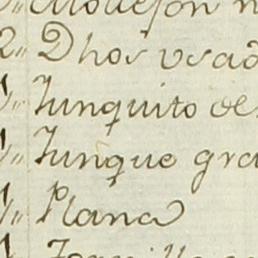 2,, Dhos usad
1,, Yunquito de
1,, Yunque gra
1,, Plana